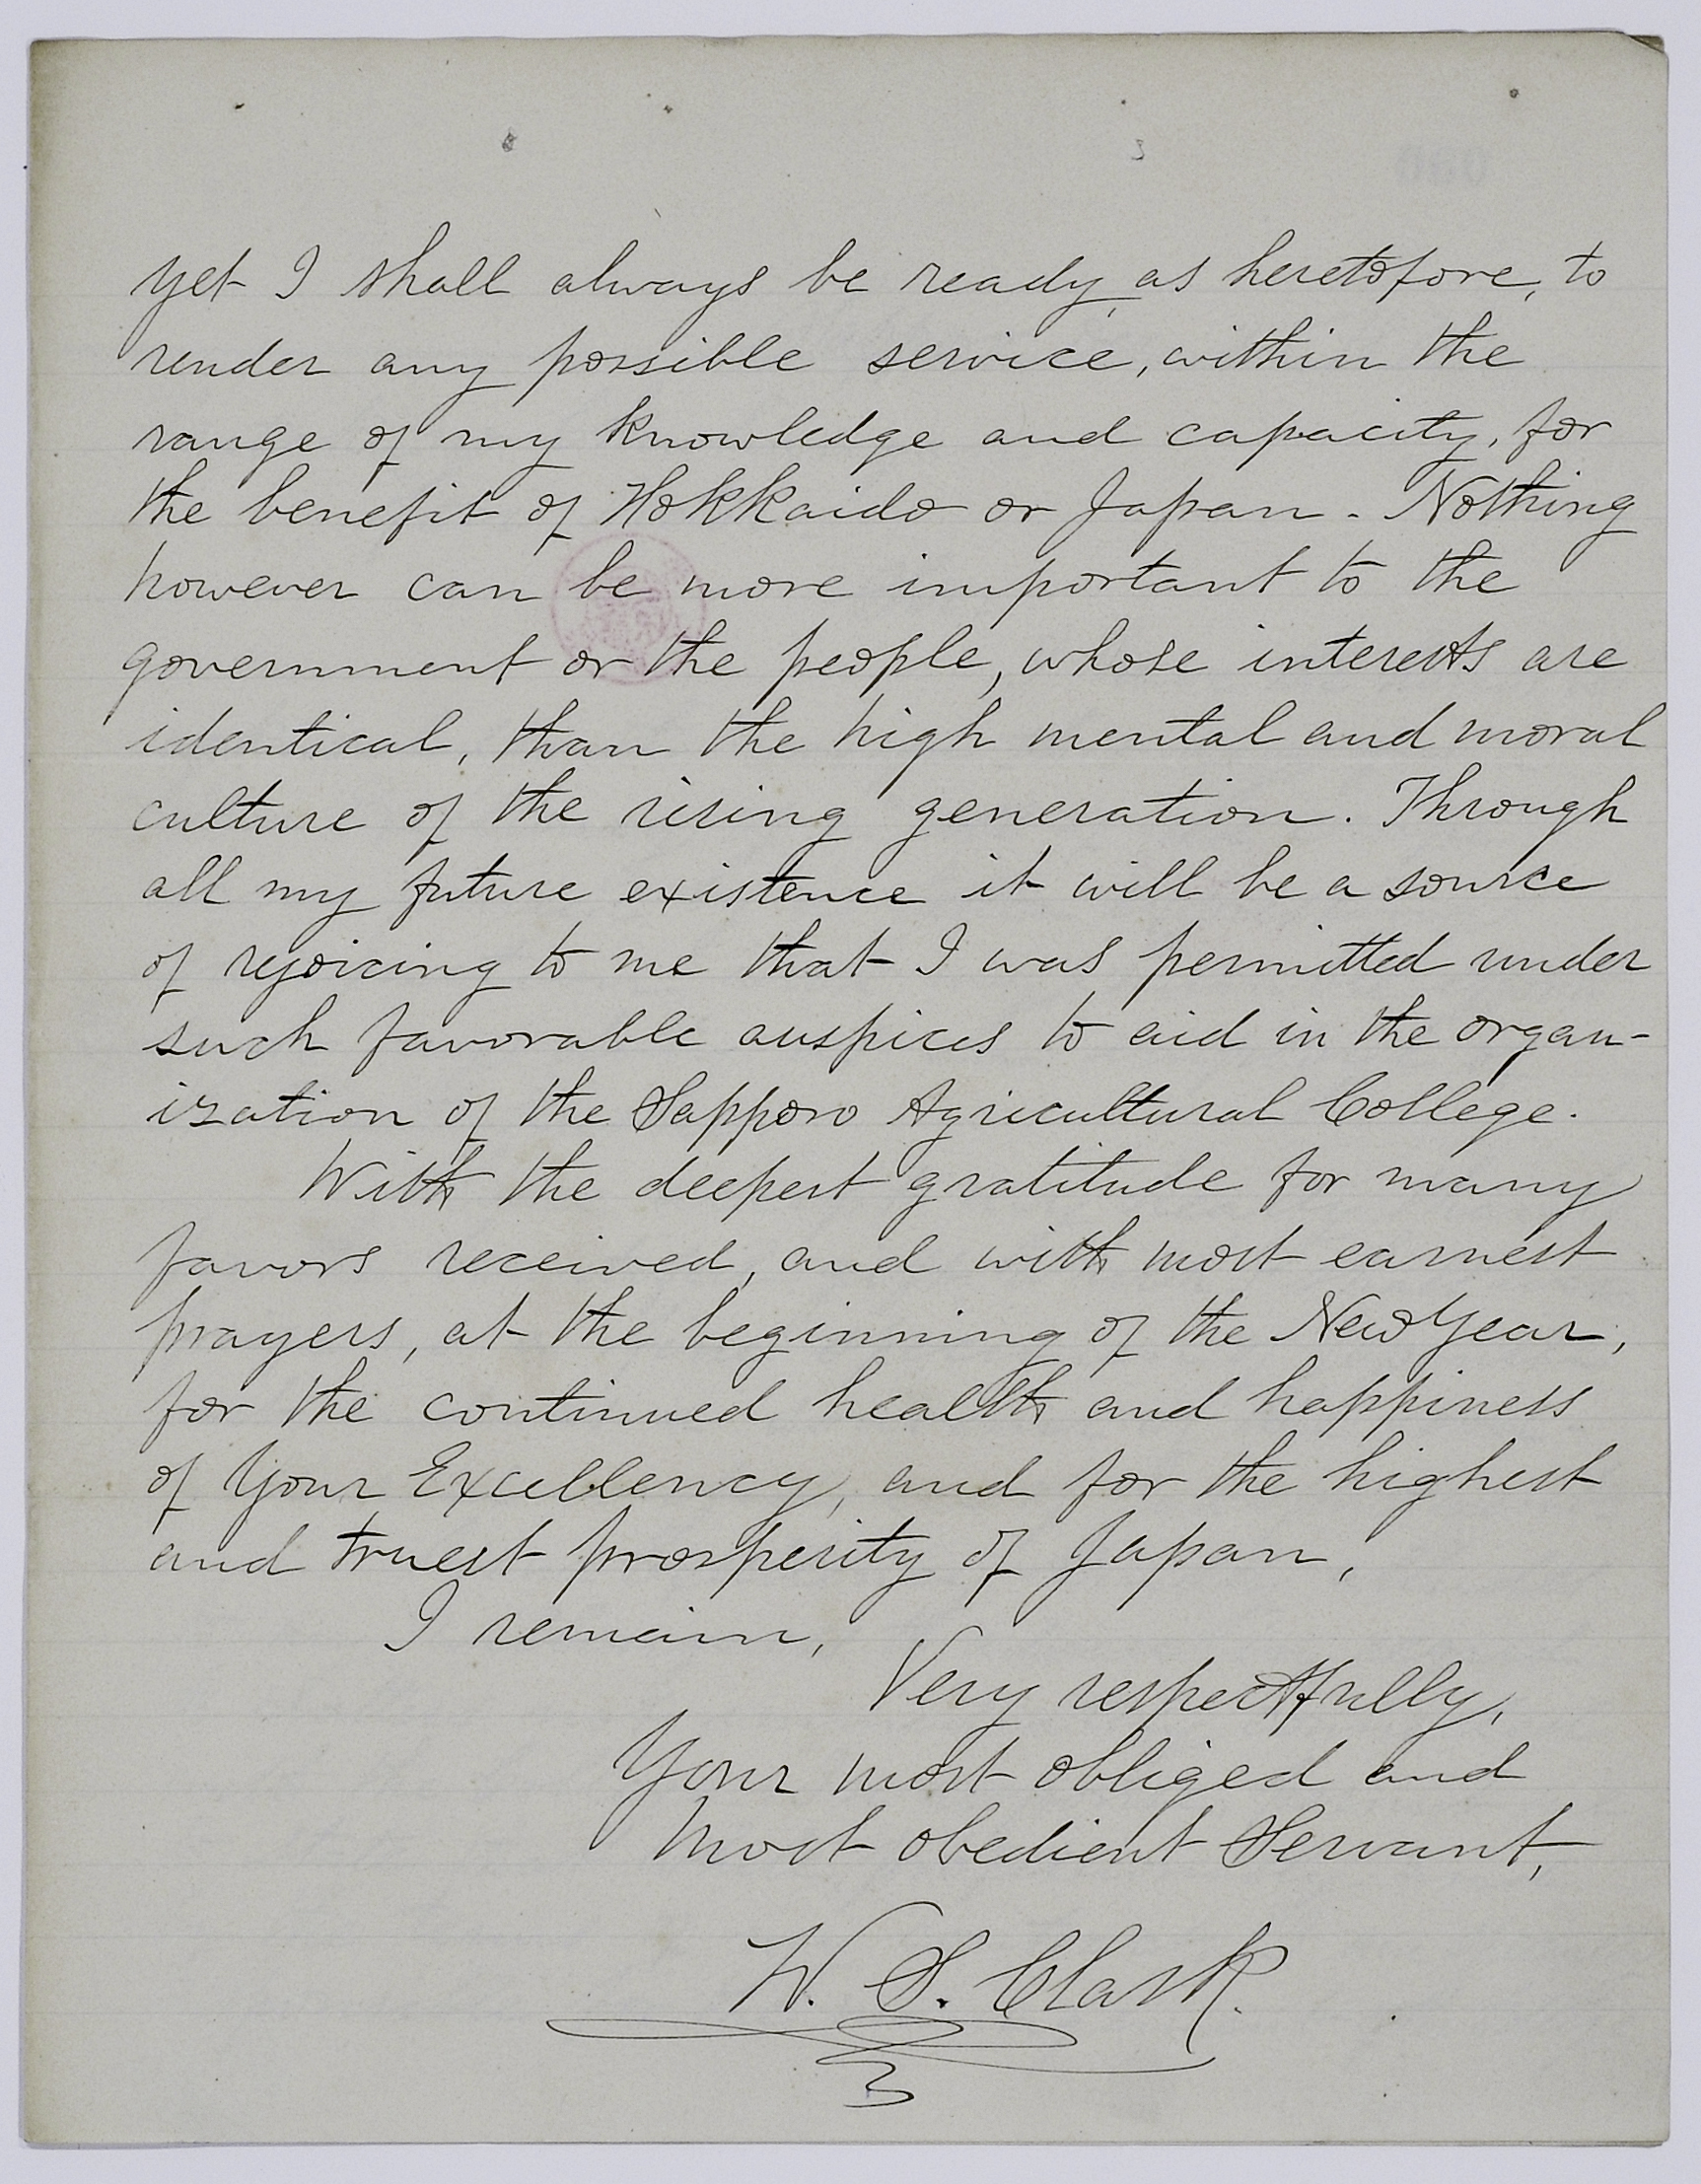 yet I shall always be ready, as heretofore, to
render any possible service, within the
range of my knowledge and capacity, for
the benefit of Hokkaido or Japan. Nothing
however can be more important to the
government or the people, whose interests are
identical, than the high mental and moral
culture of the rising generation. Through
all my future existence it will be a source
of rejoicing to me that I was permitted under
such favorable auspices to aid in the organ-
ization of the Sapporo Agricultural College.
With the deepest gratitude for many
favors received, and with most earnest
prayers, at the beginning of the New Year,
for the continued health and happiness
of Your Excellency, and for the highest
and truest prosperity of Japan,
I remain,
Very respectfully,
Your most obliged and
Most obedient Servant,
W. S. Clark.